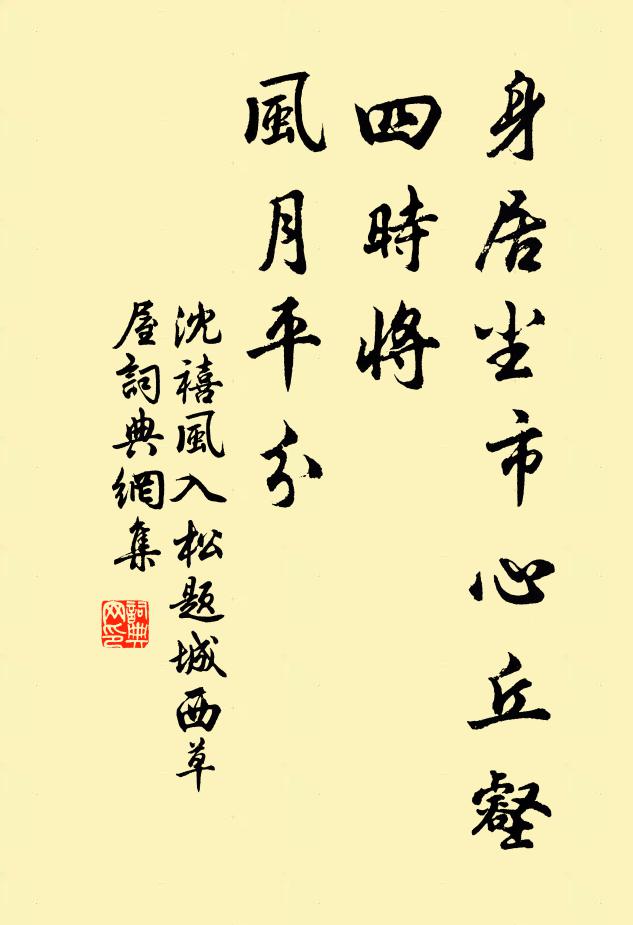 身居尘市心丘壑
四時将
風月平分
沈禧風入松题城西草
屋詞典網集
詞典网印